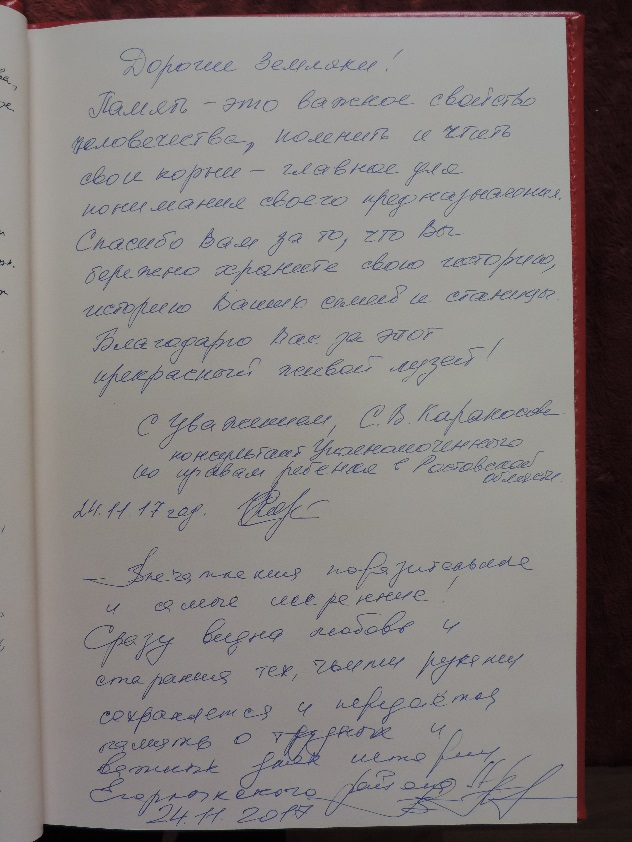 Дорогие Земляки!
Память – это важное свойство
человечества, помнить и чтить
свои корни – главное для
понимания своего предназначения.
Спасибо Вам за то, что Вы
бережно храните свою историю,
историю Ваших семей и станицы.
Благодарю Вас за этот
прекрасный живой музей!
С уважением, С.В.
консультант Уполномоченного
по правам ребенка в Ростовской
области.
24.11.17 год.
– Впечатления поразительные
и самые искренние!
Сразу видна любовь и
старания тех, чьими руками
сохраняется и передаётся
память о трудных и
важных днях истории
района!
24.11.2017